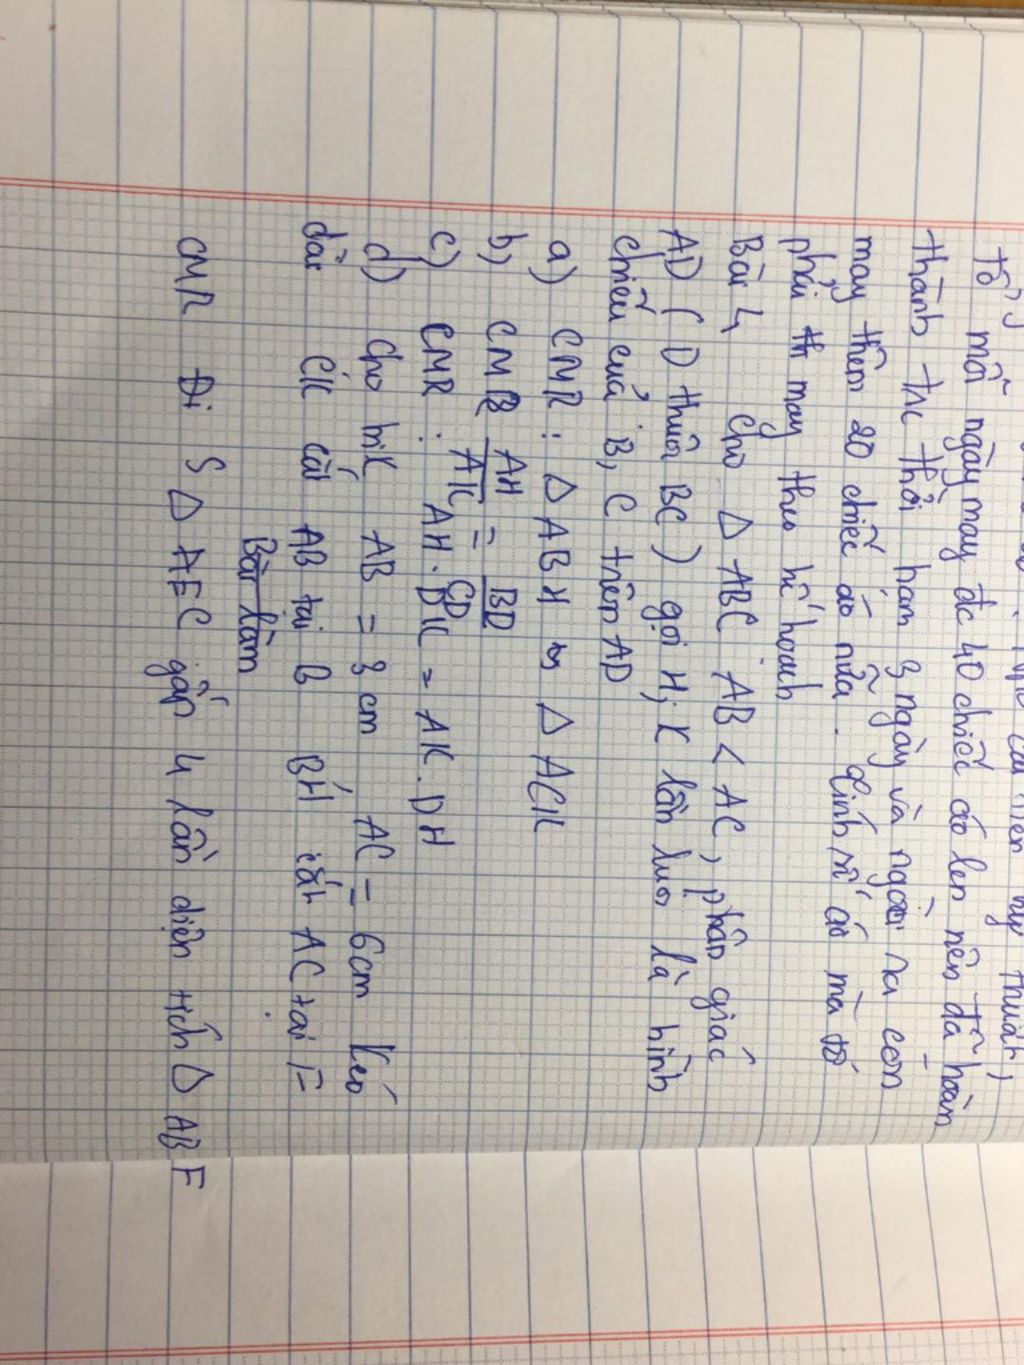 tổ mỗi ngày may đc 40 chiếc áo len nên đã hoàn
thành trc thời hạn 3 ngày và ngoài ra còn
may thêm 20 chiếc áo nữa. tính số áo mà tổ
phải may theo kế hoạch
Bài 4 Cho △ ABC AB < AC, phân giác
AD ( D thuộc BC) gọi H, K lần lượt là hình
chiếu của B, C trên AD
a) CMR : △ ABH ∽ △ ACK
b) CMR AH/AK = BD/CD
c) CMR : AH . DK = AK . DH
d) Cho biết AB = 3 cm AC = 6cm Kéo
dài CK cắt AB tại E BH cắt AC tại F
Bài làm
CMR S △ AEC gấp 4 lần diện tích △ ABF